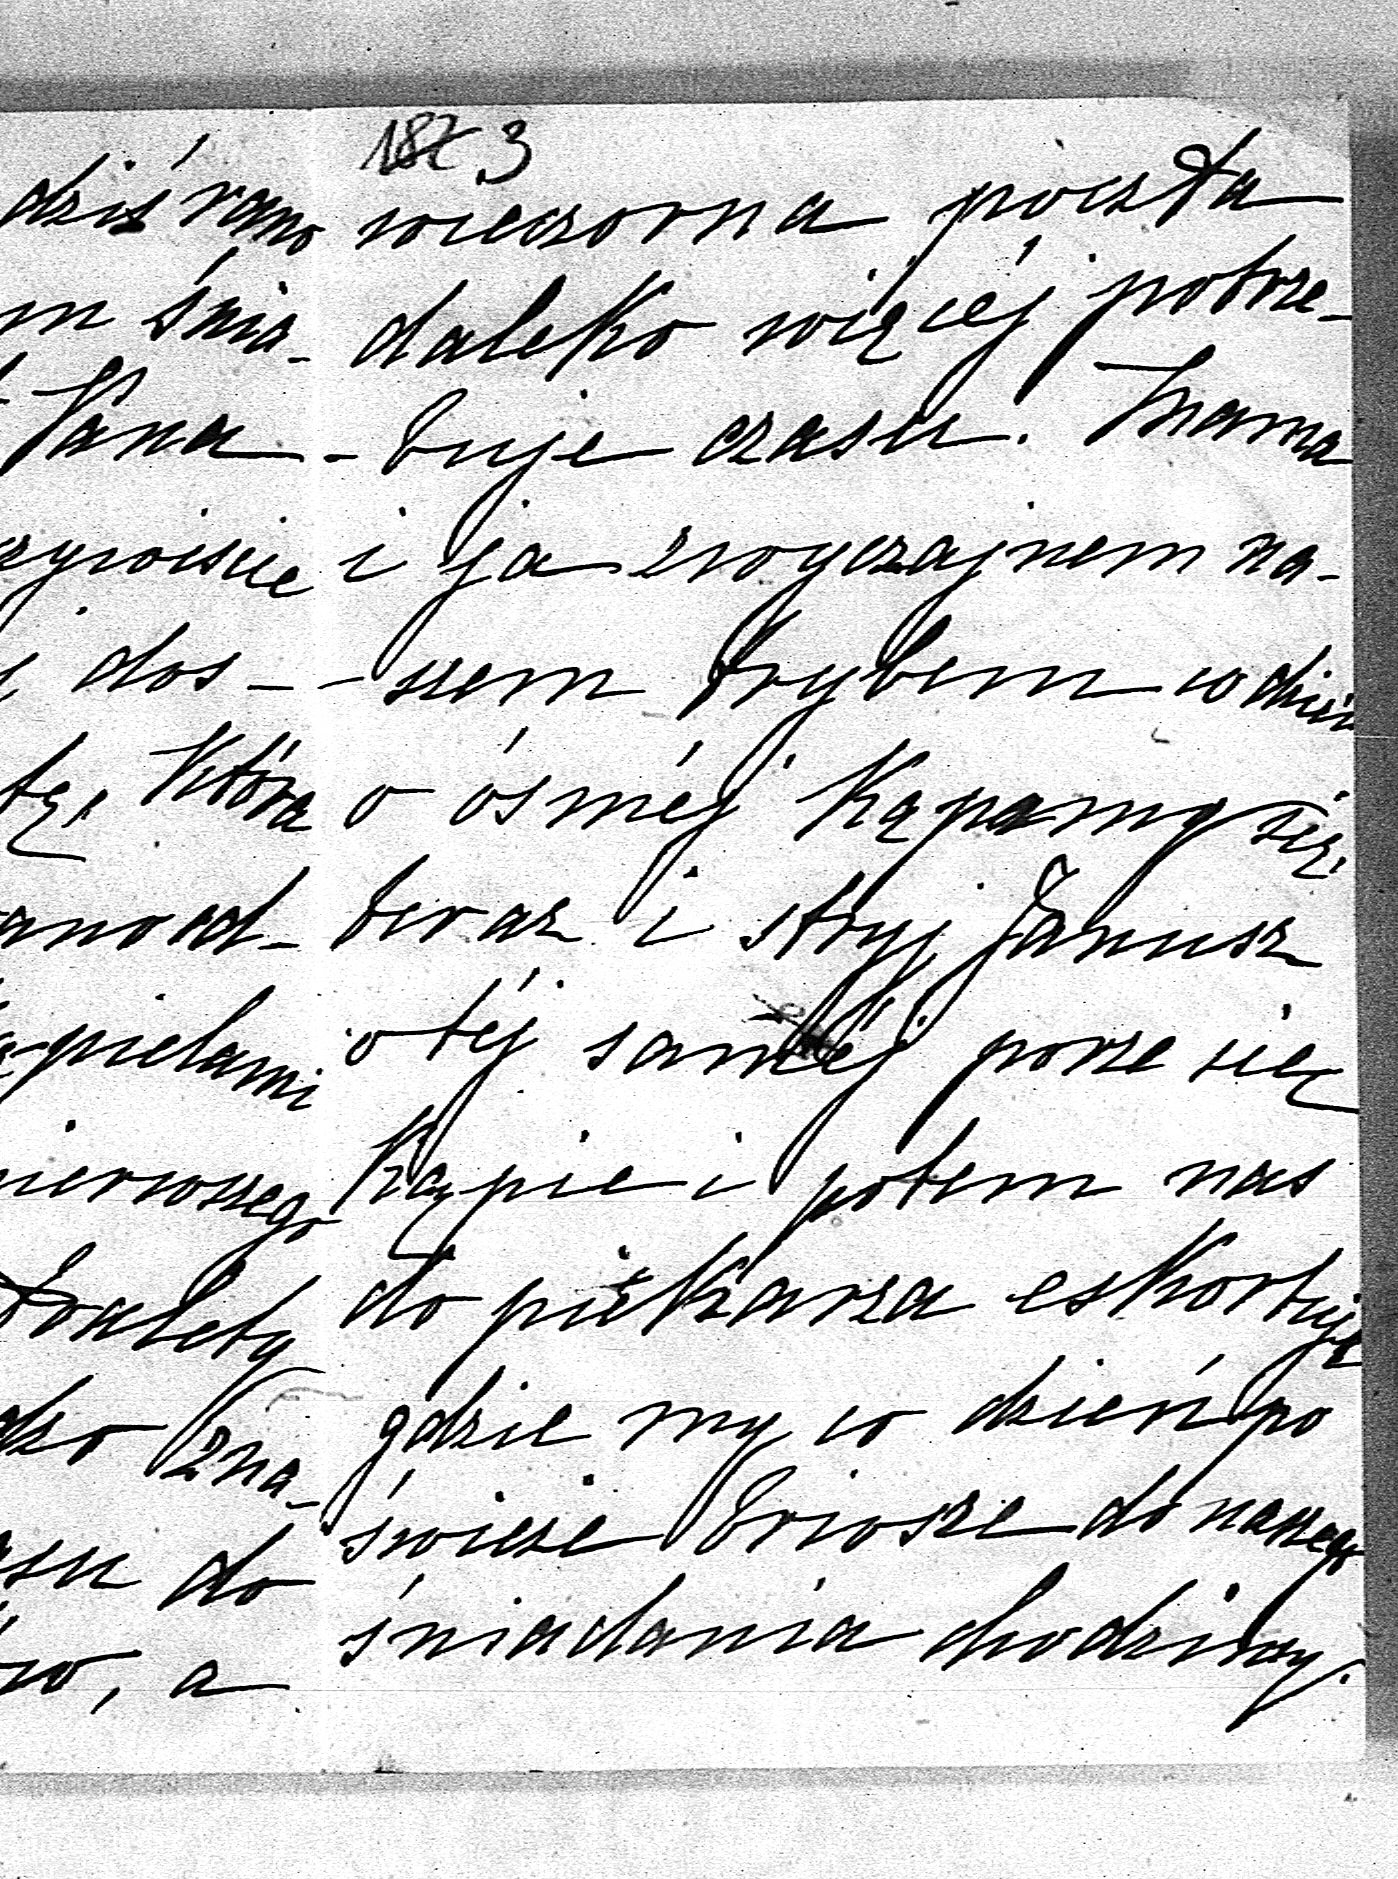 dziś rano
m śnia-
Pana
zywiscie
i dos-
tę, która
ano od-
ąpielami
pierwszego
toalety
dzo zna-
asu do
wo, a
182 3
wieczorna poczta
daleko więcéj potrze-
-buje czasu. Mama
i ja zwyczajnem na-
-szem trybem codzień
o ósméj kąpamy się,
teraz i stryj Janusz
o téj saméj porze się
kąpie i potem nas
do piekarza eskortuje
gdzie my co dzień po
świeże briosze do naszego
śniadania chodzimy.